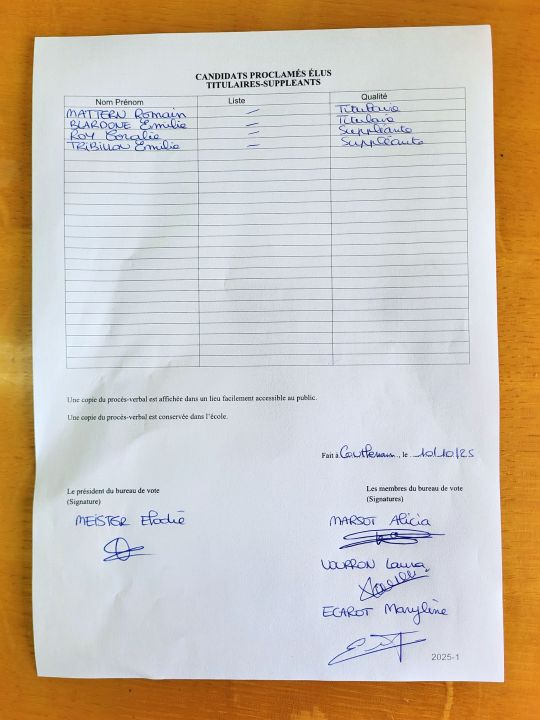 CANDIDATS PROCLAMÉS ÉLUS
TITULAIRES-SUPPLEANTS
Nom Prénom Liste Qualité
MATTERN Romain — Titulaire
BLARDONE Emilie — Titulaire
ROY Coralie — Suppléante
TRIBILLON Emilie — Suppléante
Une copie du procès-verbal est affichée dans un lieu facilement accessible au public.
Une copie du procès-verbal est conservée dans l'école.
Fait à , le 10/10/25
Le président du bureau de vote Les membres du bureau de vote
(Signature) (Signatures)
MEISTER Elodie MARSOT Alicia
VOURRON Laura
ECAROT Marylène
2025-1